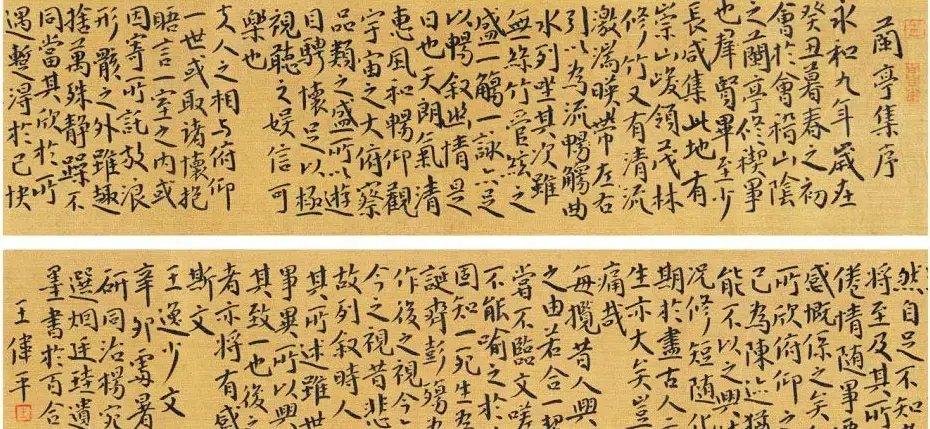 蘭亭集序
永和九年歲在
癸丑暮春之初
會於會稽山陰
之蘭亭修禊事
也群賢畢至少
長咸集此地有
崇山峻領茂林
修竹又有清流
激湍暎帶左右
引以為流暢觴曲
水列坐其次雖
無絲竹管弦之
盛一觴一詠亦足
以暢敘幽情是
日也天朗氣清
惠風和暢仰觀
宇宙之大俯察
品類之盛所以遊
目騁懷足以極
視聽之娛信可
樂也
夫人之相與俯仰
一世或取諸懷抱
晤言一室之內或
因寄所託放浪
形骸之外雖趣
捨萬殊靜躁不
同當其欣於所
遇暫得於己快
然自足不知
將至及其所
倦情隨事
感慨係之矣
所欣俯仰之
已為陳迹猶
能不以之興
況修短隨化
期於盡古人
生亦大矣豈
痛哉
每攬昔人興
之由若合一契
嘗不臨文嗟
不能喻之於
固知一死生為
誕齊彭殤為
作後之視今
今之視昔悲
故列敘時人
其所述雖世
事異所以興
其致一也後之
者亦將有感
斯文
王逸少文
辛卯處暑
研同治楊宛
選炯廷珪遺
墨書於百合
王偉平